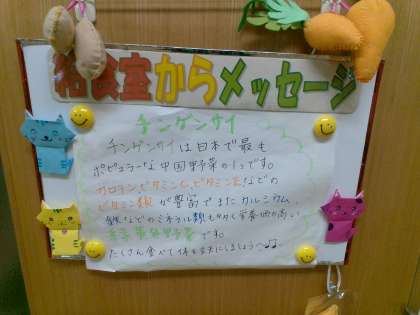 給食室からメッセージ
チンゲンサイ
チンゲンサイは日本で最も
ポピュラーな中国野菜の1つです。
カロテン、ビタミンC、ビタミンEなどの
ビタミン類が豊富でまたカルシウム、
鉄などのミネラル類もやく栄養価が高い
緑黄色野菜です。
たくさん食べて体も丈夫にしましょう〜♫